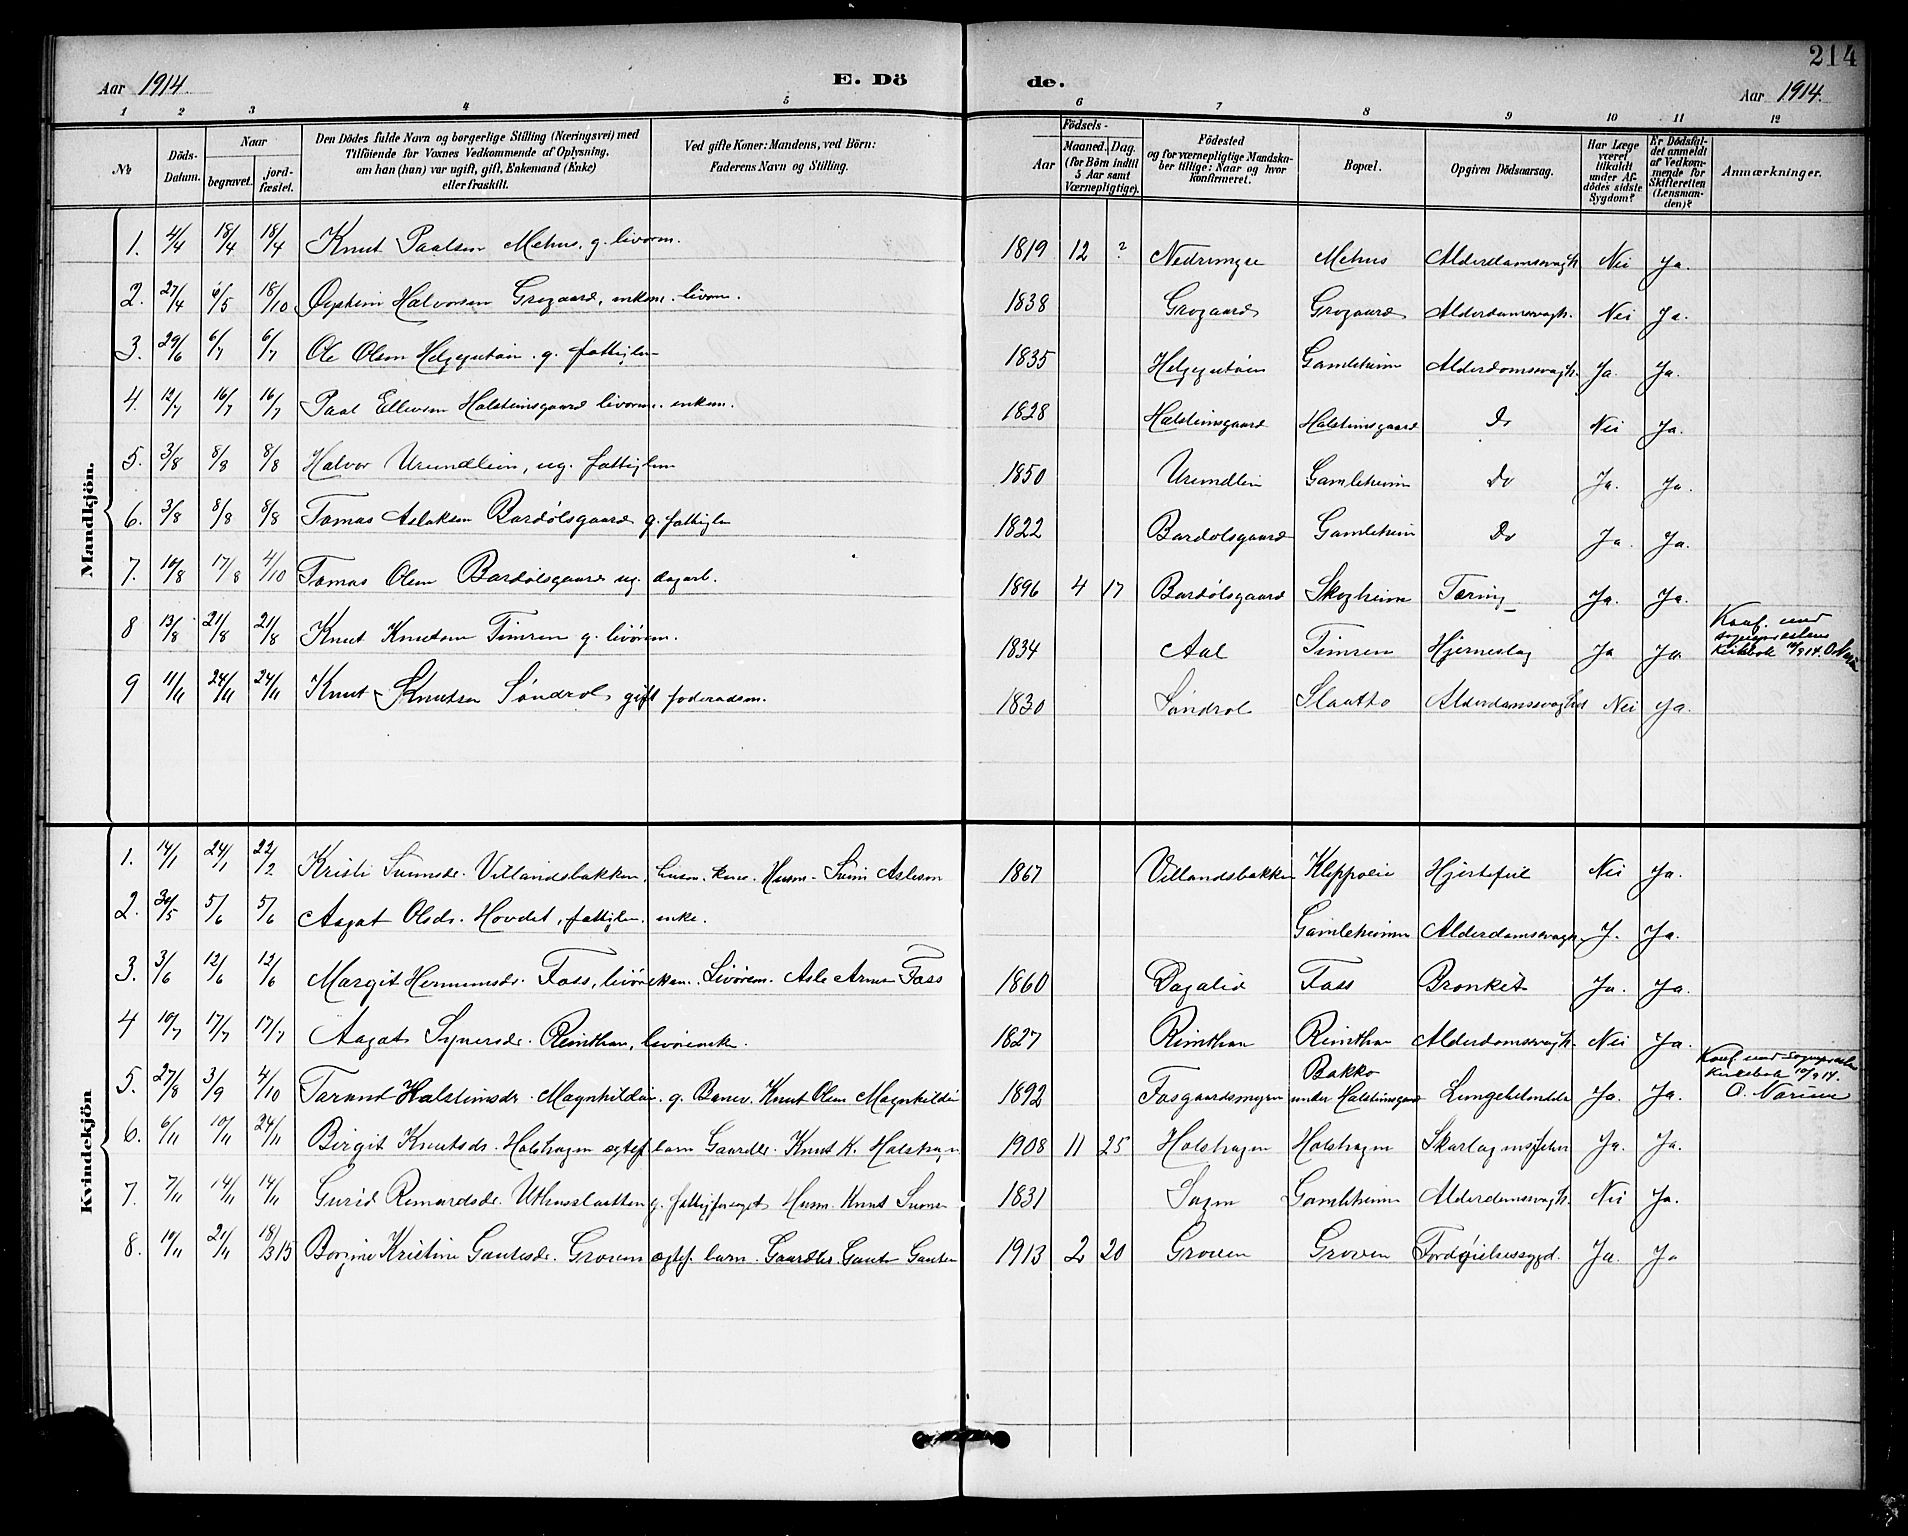 214
Aar 1914. E. Dö de. Aar 1914.
1 2 3 4 5 6 7 8 9 10 11 12
№ Döds-Datum. Naar begravet. jord-fæstet. Den Dödes fulde Navn og borgerlige Stilling (Næringsvei) med Tilföiende for Voxnes Vedkommende af Oplysning, om han (hun) var ugift, gift, Enkemand (Enke) eller fraskilt. Ved gifte Koner: Mandens, ved Börn: Faderens Navn og Stilling. Födsels- Aar Maaned. Dag. (for Börn indtil 5 Aar samt Værnepligtige). Födested og for værnepligtige Mandskaber tillige: Naar og hvor konfirmeret. Bopæl. Opgiven Dödsaarsag. Har Læge været tilkaldt under Afdödes sidste Sygdom? Er Dödsfaldet anmeldt af Vedkommende for Skifteretten (Lensmanden)? Anmærkninger.
Mandkjön.
1. 4/4 18/4 18/4 Knut Paalsen Mehus, g. livorm. 1819 12 ? Mehus Alderdomssvagh. Nei Ja.
2. 27/4 6/5 18/10 Halvorsen Grogaard, enkem. livorm. 1838 Grogaard Grogaard Alderdomssvagh. Nei Ja.
3. 29/6 6/7 6/7 Ole Olsen Helgegutøien g. fattiglem 1835 Helgegutøien Gamleheim Alderdomssvagh. Ja. Ja.
4. 12/7 16/7 16/7 Paal Ellevsen Halsteinsgaard livorm. enkem. 1828 Halsteinsgaard Halsteinsgaard Do Nei Ja.
5. 3/8 8/8 8/8 Halvor Urundlein, ug. fattiglem 1850 Urundlein Gamleheim Do Ja. Ja.
6. 3/8 8/8 8/8 Tomas Aslaksen Bardølsgaard g. fattiglem 1822 Bardølsgaard Gamleheim Do Ja. Ja.
7. 10/8 17/8 4/10 Tomas Olsen Bardølsgaard ug. dagarb. 1896 4 17 Bardølsgaard Skogheim Tæring Ja. Ja.
8 13/8 21/8 21/8 Knut Knutsen Timren g. livørem. 1834 Aal Timren Hjerneslag Ja Ja Konf. med sogneprestens kirkebok 10/9 14. O. Norin
9 11/11 24/11 24/11 Knut Knutsen Søndrol gift foderaadsm. 1830 Søndrol Slaatto Alderdomssvaghed Nei Ja.
Kvindekjön
1. 14/1 24/1 22/2 Kristi Sveinsdr. Villandsbakken, husm. kone. Husm. Svein Aslesen 1867 Villandsbakken Kleppoeie Hjertefeil Nei Ja.
2. 30/5 5/6 5/6 Aagot Olsdr. Hovdet, fattiglem. enke. Gamleheimen Alderdomssvagh. J. Ja.
3. 3/6 12/6 12/6 Margit Hermunsdr. Foss, livørekone. Livørem. Asle Arnesen Foss 1860 Dagalid Foss Bronkit Ja. Ja.
4 10/7 17/7 17/7 Aagot Syversdr. Reinthon, livøreenke. 1827 Reinthon Reinthon Alderdomssvagh. Nei Ja.
5. 27/8 3/9 4/10 Torand Halsteinsdr. Magnhildøien. g. Knut Olsen Magnhildøi 1892 Fosgaardsmyren Bakko under Halsteinsgaard Lungebetændelse Ja. Ja. Konf. med sogneprestens kirkebok 10/9 14. O. Norin
6. 6/11 10/11 24/11 Birgit Knutsdr. Holshagen ægtef. barn Gaardbr. Knut K. Holshagen 1908 11 25 Holshagen Holshagen Skarlagensfeber Ja. Ja.
7. 7/11 14/11 14/11 Gurid Reinardsdr. Uthusslaatten g. fattigforsørget Husm. Knut Svensen 1831 Sagen Gamleheim Alderdomssvagh. Nei Ja.
8. 10/11 21/11 18/3 15 Borgine Kristine Gautesdr. Groven ægtef. barn. Gaardbr. Gaute Gautesen 1913 2 20 Groven Groven Fordøielsessygd. Ja. Ja